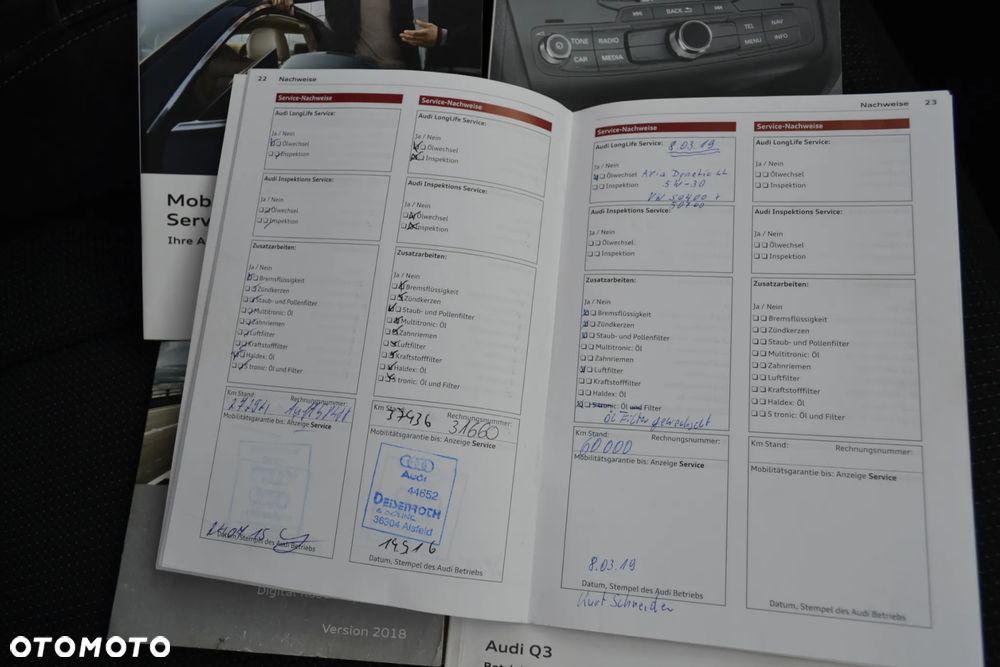 Mob
Serv
Ihre A
BACK
TONE
RADIO
CAR
MEDIA
TEL
NAV
MENU
INFO
22 Nachweise
Service-Nachweise
Audi LongLife Service:
Ja / Nein
Ölwechsel
Inspektion
Audi Inspektions Service:
Ja / Nein
Ölwechsel
Inspektion
Zusatzarbeiten:
Ja / Nein
Bremsflüssigkeit
Zündkerzen
Staub- und Pollenfilter
Multitronic: Öl
Zahnriemen
Luftfilter
Kraftstofffilter
Haldex: Öl
S tronic: Öl und Filter
Km Stand: Rechnungsnummer:
Mobilitätsgarantie bis: Anzeige Service
Datum, Stempel des Audi Betriebs
Service-Nachweise
Audi LongLife Service:
Ja / Nein
Ölwechsel
Inspektion
Audi Inspektions Service:
Ja / Nein
Ölwechsel
Inspektion
Zusatzarbeiten:
Ja / Nein
Bremsflüssigkeit
Zündkerzen
Staub- und Pollenfilter
Multitronic: Öl
Zahnriemen
Luftfilter
Kraftstofffilter
Haldex: Öl
S tronic: Öl und Filter
Km Stand: Rechnungsnummer:
37436 31660
Mobilitätsgarantie bis: Anzeige Service
Audi
44652
DEISENROTH
& SÖHNE
36304 Alsfeld
14.9.16
Datum, Stempel des Audi Betriebs
Nachweise 23
Service-Nachweise
Audi LongLife Service: 8.03.19
Ja / Nein
Ölwechsel
Inspektion 5W-30
VW 50400 +
50700
Audi Inspektions Service:
Ja / Nein
Ölwechsel
Inspektion
Zusatzarbeiten:
Ja / Nein
Bremsflüssigkeit
Zündkerzen
Staub- und Pollenfilter
Multitronic: Öl
Zahnriemen
Luftfilter
Kraftstofffilter
Haldex: Öl
S tronic: Öl und Filter
Öl Filter gewechselt
Km Stand: Rechnungsnummer:
60000
Mobilitätsgarantie bis: Anzeige Service
8.03.19
Datum, Stempel des Audi Betriebs
Kurt Schneider
Service-Nachweise
Audi LongLife Service:
Ja / Nein
Ölwechsel
Inspektion
Audi Inspektions Service:
Ja / Nein
Ölwechsel
Inspektion
Zusatzarbeiten:
Ja / Nein
Bremsflüssigkeit
Zündkerzen
Staub- und Pollenfilter
Multitronic: Öl
Zahnriemen
Luftfilter
Kraftstofffilter
Haldex: Öl
S tronic: Öl und Filter
Km Stand: Rechnungsnummer:
Mobilitätsgarantie bis: Anzeige Service
Datum, Stempel des Audi Betriebs
Version 2018
Audi Q3
OTOMOTO